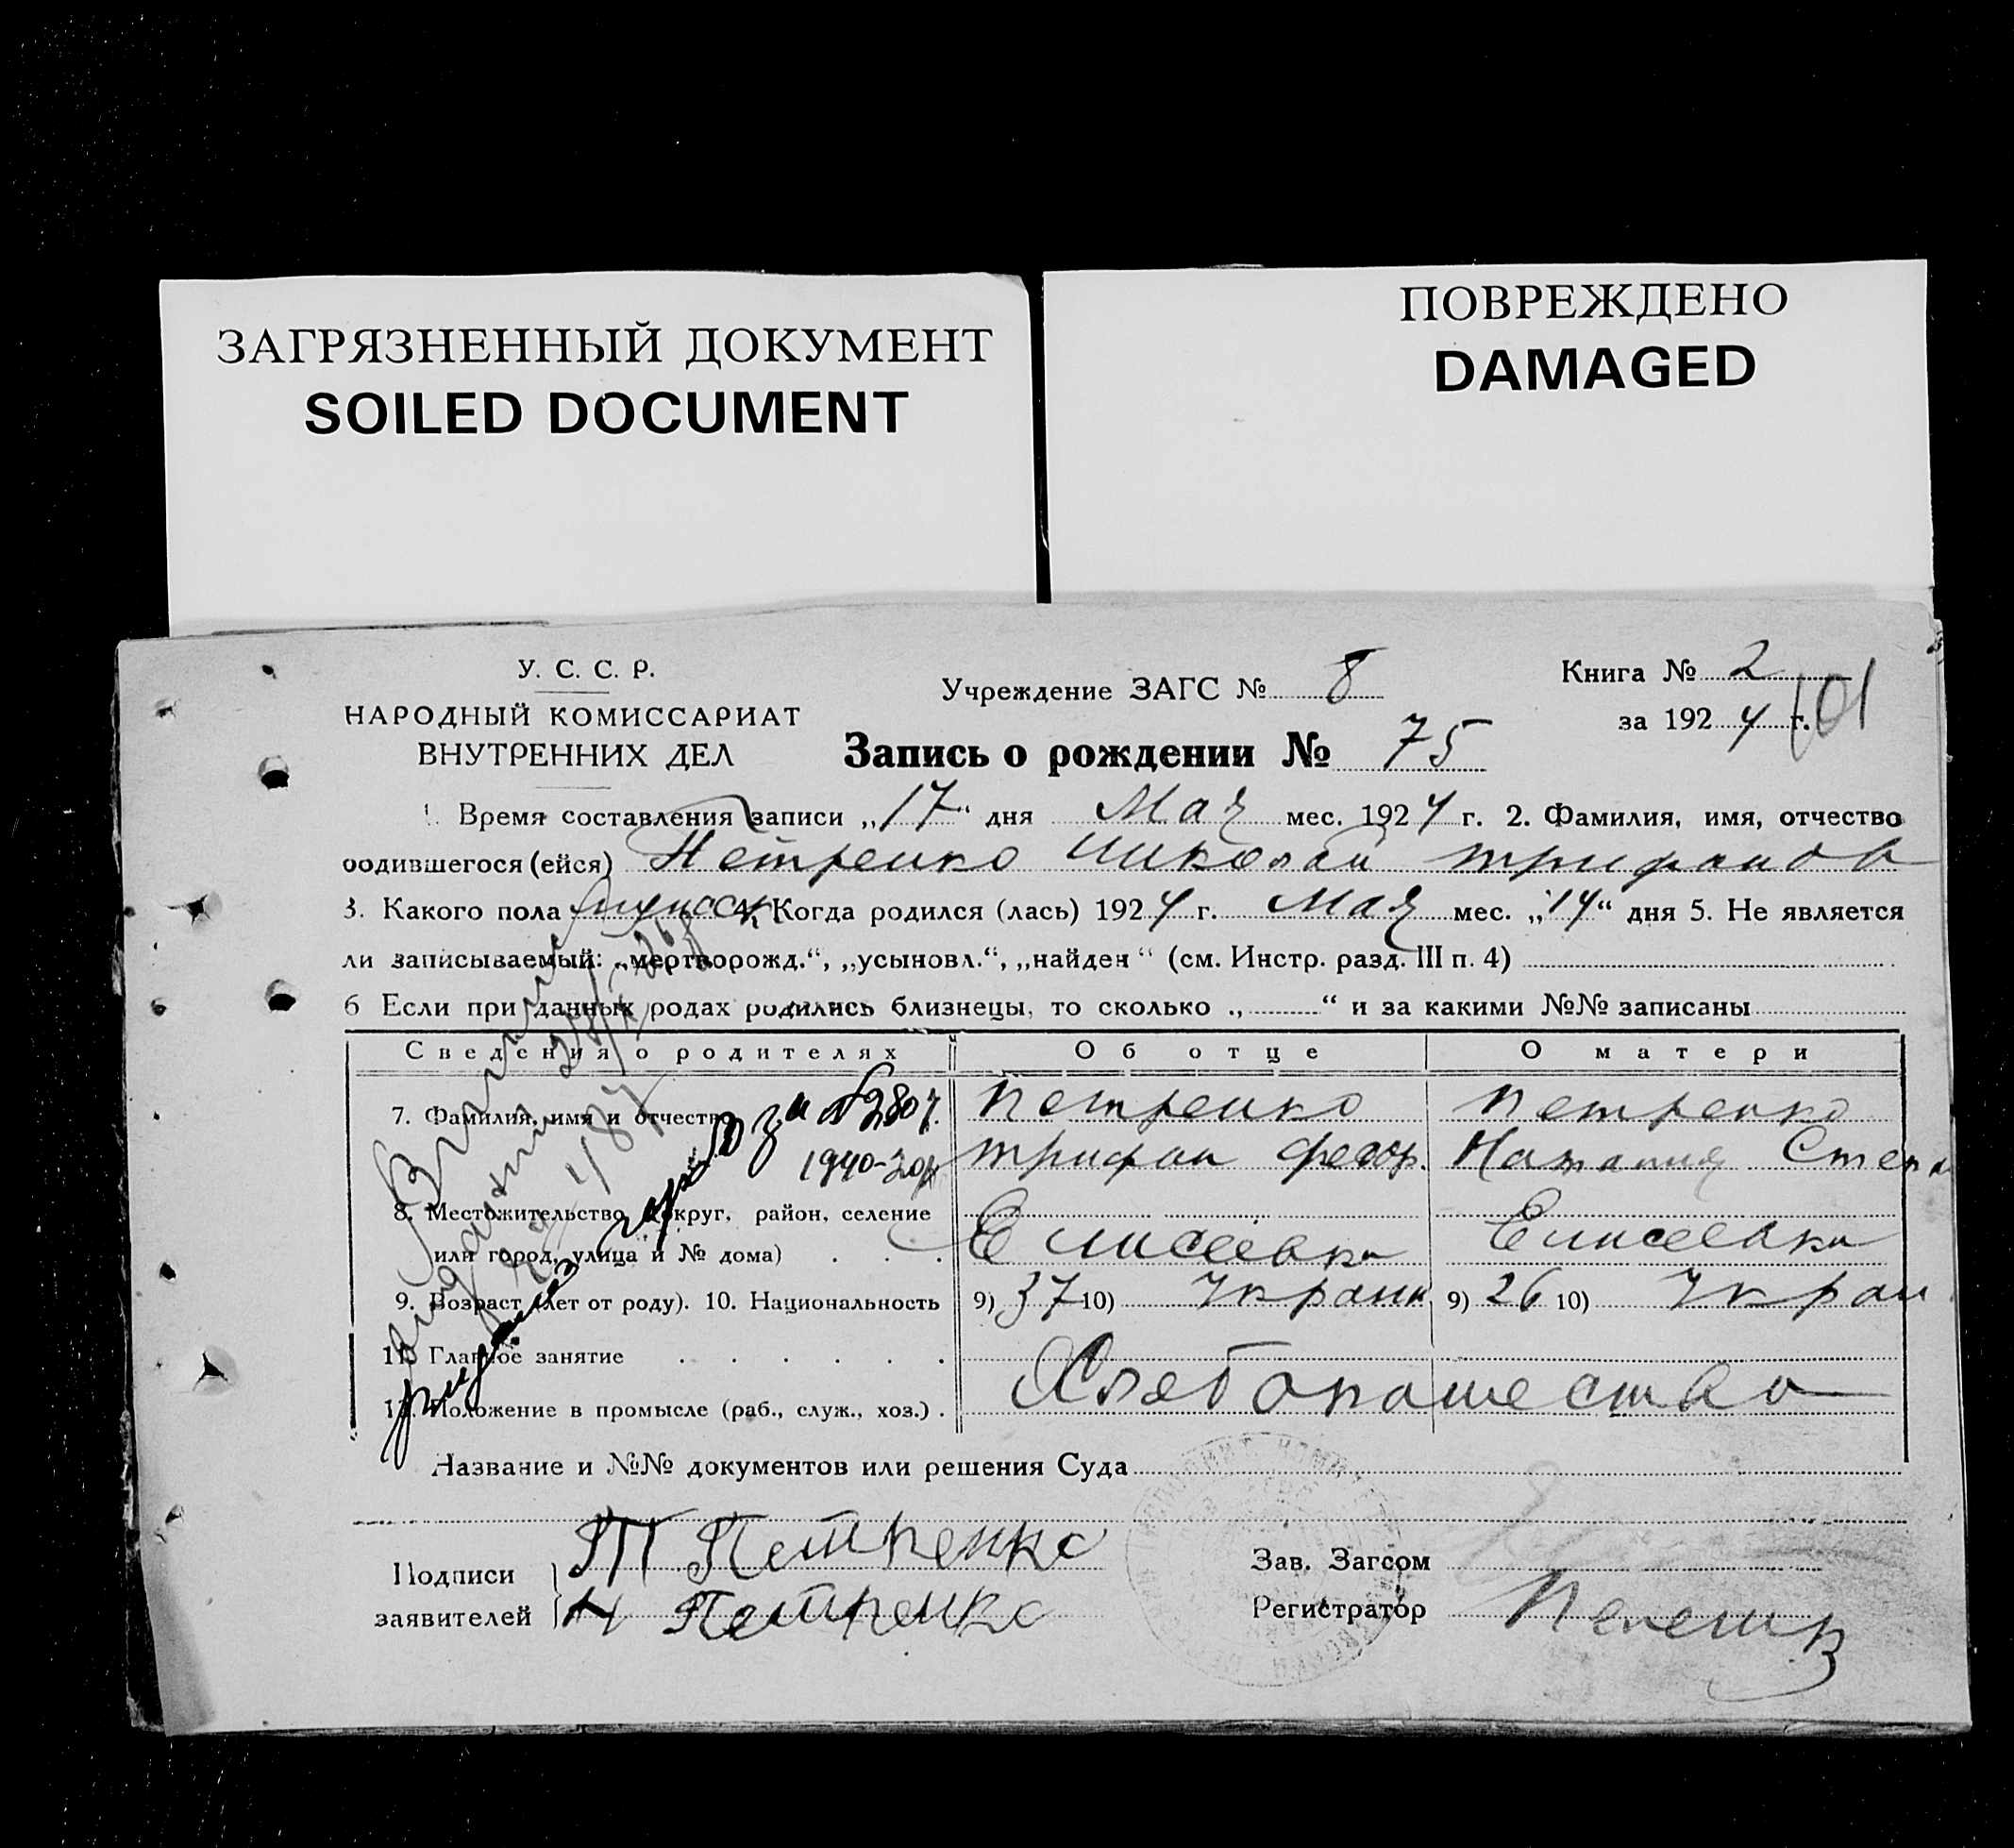 ЗАГРЯЗНЕННЫЙ ДОКУМЕНТ
SOILED DOCUMENT
ПОВРЕЖДЕНО
DAMAGED
У. С. С. Р.
НАРОДНЫЙ КОМИССАРИАТ
ВНУТРЕННИХ ДЕЛ
Учреждение ЗАГС № 8
Книга № 2
за 1924 г. 101
Запись о рождении № 75
1. Время составления записи „17“ дня Мая мес. 1924 г. 2. Фамилия, имя, отчество
родившегося (ейся) Петренко Николай Трифонов
3. Какого пола мужск 4. Когда родился (лась) 1924 г. Мая мес. „14“ дня 5. Не является
ли записываемый: „мертворожд.“, „усыновл.“, „найден“ (см. Инстр. разд. III п. 4)
6 Если при данных родах родились близнецы, то сколько „ “ и за какими №№ записаны
Сведения о родителях Об отце О матери
7. Фамилия, имя и отчество Петренко Петренко
Трифон Федор. Наталия Степа
8. Местожительство (округ, район, селение
или город, улица и № дома) Елисеевка Елисеевка
9. Возраст (лет от роду). 10. Национальность 9) 37 10) Украин 9) 26 10) Украи
11. Главное занятие
12. Положение в промысле (раб., служ., хоз.) Хлебопашество
за № 2807
Название и №№ документов или решения Суда
Подписи
заявителей
Т Петренко
Н Петренко
Зав. Загсом
Регистратор